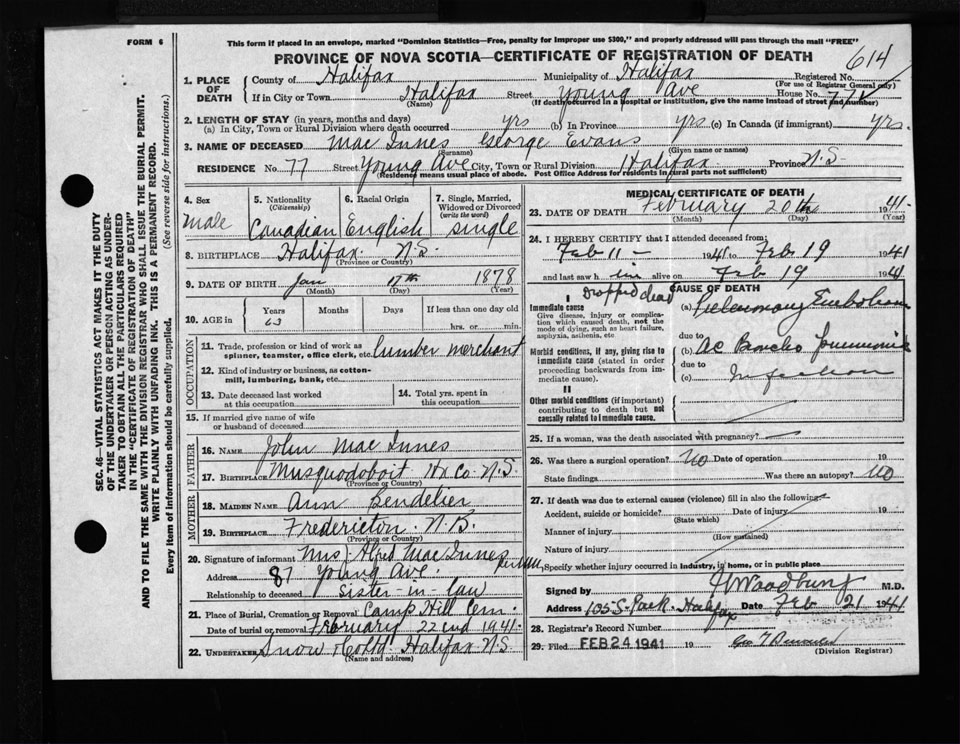 FORM 6
This form if placed in an envelope, marked "Dominion Statistics—Free, penalty for improper use $300," and properly addressed will pass through the mail "FREE"
PROVINCE OF NOVA SCOTIA—CERTIFICATE OF REGISTRATION OF DEATH
614
1. PLACE OF DEATH County of Halifax Municipality of Halifax Registered No.
(For use of Registrar General only)
If in City or Town Halifax Street Young Ave House No. 77
(Name) (If death occurred in a hospital or institution, give the name instead of street and number)
2. LENGTH OF STAY (in years, months and days)
(a) In City, Town or Rural Division where death occurred yrs (b) In Province yrs (c) In Canada (if immigrant) yrs.
3. NAME OF DECEASED Mac Innes George Evans
(Surname) (Given name or names)
RESIDENCE No 77 Street Young Ave City, Town or Rural Division Halifax Province N.S
(Residence means usual place of abode. Post Office Address for residents in rural parts not sufficient)
4. Sex 5. Nationality 6. Racial Origin 7. Single, Married, Widowed or Divorced
(Citizenship) (write the word)
male Canadian English single
8. BIRTHPLACE Halifax N.S.
(Province or Country)
9. DATE OF BIRTH Jan 17th 1878
(Month) (Day) (Year)
10. AGE in Years Months Days If less than one day old
63 hrs. or min.
OCCUPATION
11. Trade, profession or kind of work as spinner, teamster, office clerk, etc. lumber merchant
12. Kind of industry or business, as cotton-mill, lumbering, bank, etc.
13. Date deceased last worked at this occupation 14. Total yrs. spent in this occupation
15. If married give name of wife or husband of deceased
FATHER
16. NAME John Mac Innes
17. BIRTHPLACE Musquodoboit Hx Co N.S.
(Province or Country)
MOTHER
18. MAIDEN NAME Ann Bendelier
19. BIRTHPLACE Fredericton. N.B.
(Province or Country)
20. Signature of informant Mrs Alfred Mac Innes
Address 87 Young Ave.
Relationship to deceased sister-in law
21. Place of Burial, Cremation or Removal Camp Hill Cem.
Date of burial or removal February 22nd 1941.
22. UNDERTAKER Snow & Co Ltd. Halifax N.S.
(Name and address)
MEDICAL CERTIFICATE OF DEATH
23. DATE OF DEATH February 20th 1941.
(Month) (Day)
24. I HEREBY CERTIFY that I attended deceased from:
Feb 11 – 1941 to Feb 19 1941
and last saw him alive on Feb 19 1941
CAUSE OF DEATH
I Dropped dead
Immediate cause (a) Pulmonary Embolism
Give disease, injury or complication which caused death, not the mode of dying, such as heart failure, asphyxia, asthenia, etc
due to
Morbid conditions, if any, giving rise to immediate cause (stated in order proceeding backwards from immediate cause). (b) Ac Broncho Pneumonia
due to
(c) Infection
II
Other morbid conditions (if important) contributing to death but not causally related to immediate cause.
25. If a woman, was the death associated with pregnancy?
26. Was there a surgical operation? NO Date of operation 19
State findings Was there an autopsy? NO
27. If death was due to external causes (violence) fill in also the following:
Accident, suicide or homicide? Date of injury 19
(State which)
Manner of injury
(How sustained)
Nature of injury
Specify whether injury occurred in industry, in home, or in public place
Signed by Woodbury M.D.
Address 105 S. Park. Halifax Date Feb 21 1941
28. Registrar's Record Number
29. Filed FEB 24 1941 19
(Division Registrar)
SEC. 46—VITAL STATISTICS ACT MAKES IT THE DUTY OF THE UNDERTAKER OR PERSON ACTING AS UNDERTAKER TO OBTAIN ALL THE PARTICULARS REQUIRED IN THE "CERTIFICATE OF REGISTRATION OF DEATH"
AND TO FILE THE SAME WITH THE DIVISION REGISTRAR WHO SHALL ISSUE THE BURIAL PERMIT.
WRITE PLAINLY WITH UNFADING INK. THIS IS A PERMANENT RECORD.
Every item of information should be carefully supplied. (See reverse side for instructions.)